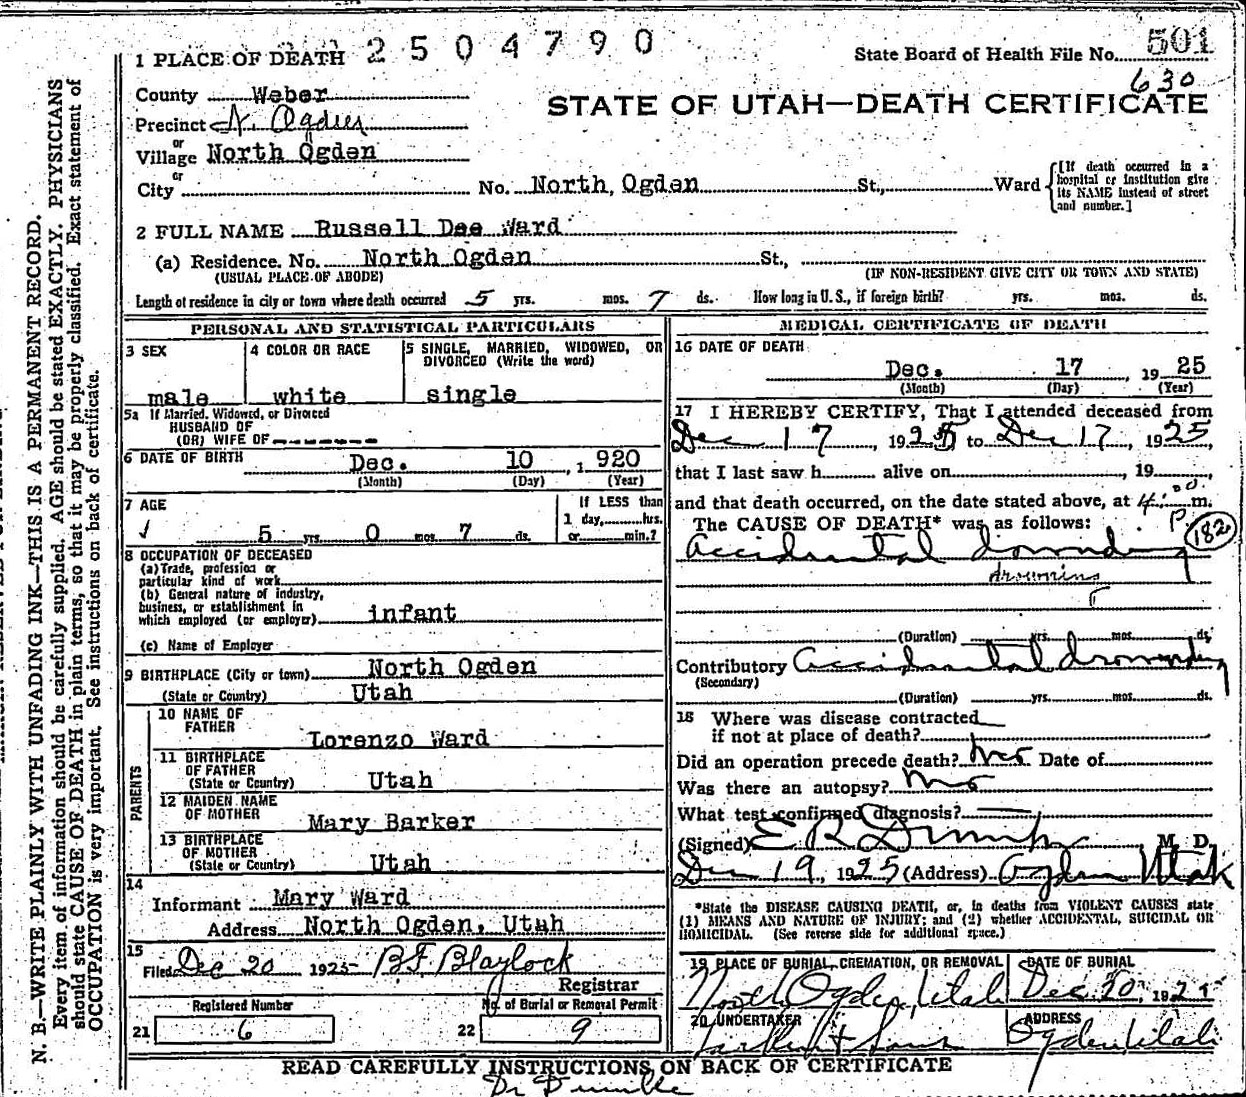 2504790
1 PLACE OF DEATH
State Board of Health File No. 501
630
County Weber
STATE OF UTAH—DEATH CERTIFICATE
Precinct N. Ogden
or
Village North Ogden
or
City No. North, Ogden St., Ward
[If death occurred in a hospital or institution give its NAME instead of street and number.]
2 FULL NAME Russell Dee Ward
(a) Residence. No. North Ogden St.,
(USUAL PLACE OF ABODE) (IF NON-RESIDENT GIVE CITY OR TOWN AND STATE)
Length of residence in city or town where death occurred 5 yrs. mos. 7 ds. How long in U. S., if foreign birth? yrs. mos. ds.
PERSONAL AND STATISTICAL PARTICULARS
3 SEX
male
4 COLOR OR RACE
white
5 SINGLE, MARRIED, WIDOWED, OR
DIVORCED (Write the word)
single
5a If Married, Widowed, or Divorced
HUSBAND OF
(OR) WIFE OF -------
6 DATE OF BIRTH Dec. 10, 1 920
(Month) (Day) (Year)
7 AGE
5 yrs. 0 mos. 7 ds.
If LESS than
1 day, hrs.
or min.?
8 OCCUPATION OF DECEASED
(a) Trade, profession or
particular kind of work
(b) General nature of industry,
business, or establishment in
which employed (or employer) infant
(c) Name of Employer
9 BIRTHPLACE (City or town) North Ogden
(State or Country) Utah
PARENTS
10 NAME OF
FATHER
Lorenzo Ward
11 BIRTHPLACE
OF FATHER
(State or Country) Utah
12 MAIDEN NAME
OF MOTHER
Mary Barker
13 BIRTHPLACE
OF MOTHER
(State or Country) Utah
14
Informant Mary Ward
Address North Ogden, Utah
15
Filed Dec 20 1925- BF Blaylock
Registrar
Registered Number
21 6
No. of Burial or Removal Permit
22 9
MEDICAL CERTIFICATE OF DEATH
16 DATE OF DEATH
Dec. 17 19 25
(Month) (Day) (Year)
17 I HEREBY CERTIFY, That I attended deceased from
Dec 17, 1925 to Dec 17, 1925,
that I last saw h alive on , 19 ,
and that death occurred, on the date stated above, at 4:00 P. m.
The CAUSE OF DEATH* was as follows:
182
Accidental drownding
drowning
(Duration) yrs. mos. ds.
Contributory Accidental drownding
(Secondary)
(Duration) yrs. mos. ds.
18 Where was disease contracted
if not at place of death?
Did an operation precede death? no Date of
Was there an autopsy? no
What test confirmed diagnosis?
(Signed) E R Dumke M. D.
Dec 19, 1925 (Address) Ogden Utah
*State the DISEASE CAUSING DEATH, or, in deaths from VIOLENT CAUSES state
(1) MEANS AND NATURE OF INJURY; and (2) whether ACCIDENTAL, SUICIDAL OR
HOMICIDAL. (See reverse side for additional space.)
19 PLACE OF BURIAL, CREMATION, OR REMOVAL
North Ogden, Utah
DATE OF BURIAL
Dec. 20, 1925
20 UNDERTAKER
Larkin & Sons
ADDRESS
Ogden Utah
READ CAREFULLY INSTRUCTIONS ON BACK OF CERTIFICATE
Dr Dumke
N. B.—WRITE PLAINLY WITH UNFADING INK—THIS IS A PERMANENT RECORD.
Every item of information should be carefully supplied. AGE should be stated EXACTLY. PHYSICIANS
should state CAUSE OF DEATH in plain terms, so that it may be properly classified. Exact statement of
OCCUPATION is very important. See instructions on back of certificate.